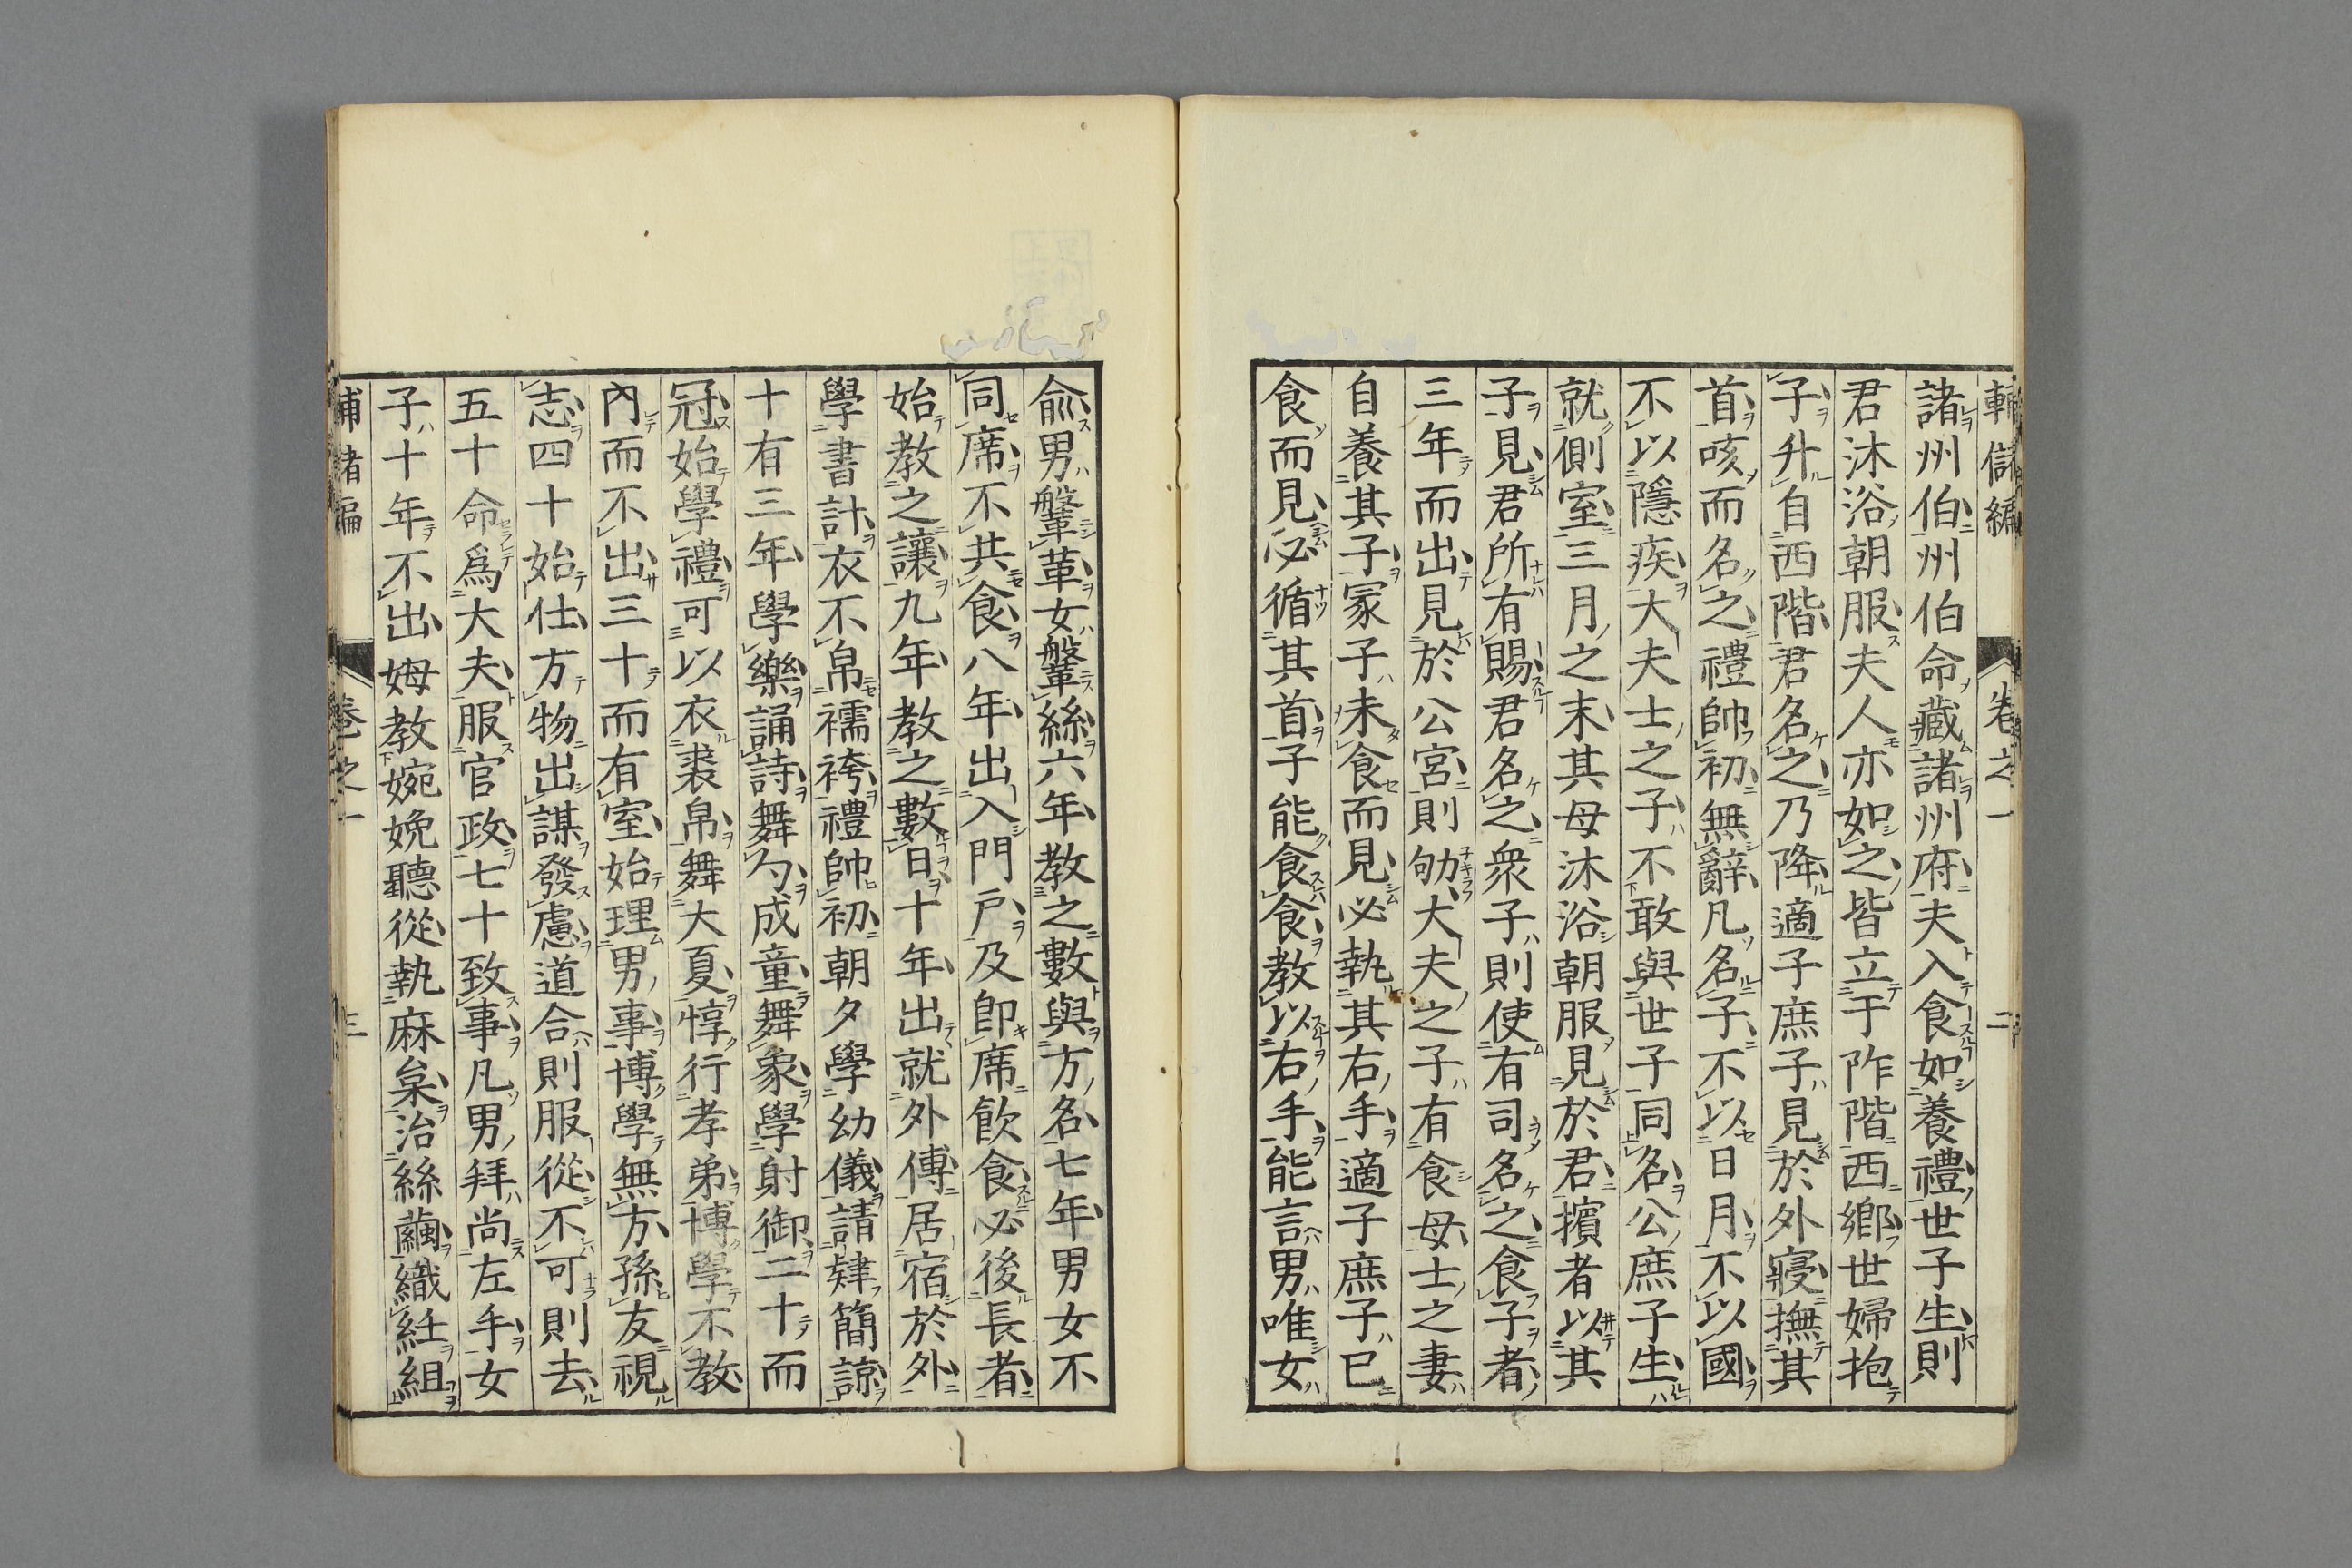 輔儲編 卷之一 二
諸州伯州伯命藏諸州府夫入食如養禮世子生則
君沐浴朝服夫人亦如之皆立于阼階西鄉世婦抱
子升自西階君名之乃降適子庶子見於外寢撫其
首咳而名之禮帥初無辭凡名子不以日月不以國
不以隱疾大夫士之子不敢與世子同名公庶子生
就側室三月之末其母沐浴朝服見於君擯者以其
子見君所有賜君名之衆子則使有司名之食子者
三年而出見於公宮則劬大夫之子有食母士之妻
自養其子冢子未食而見必執其右手適子庶子已
食而見必循其首子能食食教以右手能言男唯女
兪男鞶革女鞶絲六年教之數與方名七年男女不
同席不共食八年出入門戶及卽席飲食必後長者
始教之讓九年教之數日十年出就外傅居宿於外
學書計衣不帛襦袴禮帥初朝夕學幼儀請肄簡諒
十有三年學樂誦詩舞勺成童舞象學射御二十而
冠始學禮可以衣裘帛舞大夏惇行孝弟博學不教
內而不出三十而有室始理男事博學無方孫友視
志四十始仕方物出謀發慮道合則服從不可則去
五十命爲大夫服官政七十致事凡男拜尚左手女
子十年不出姆教婉娩聽從執麻枲治絲繭織紝組
輔儲編 卷之一 三